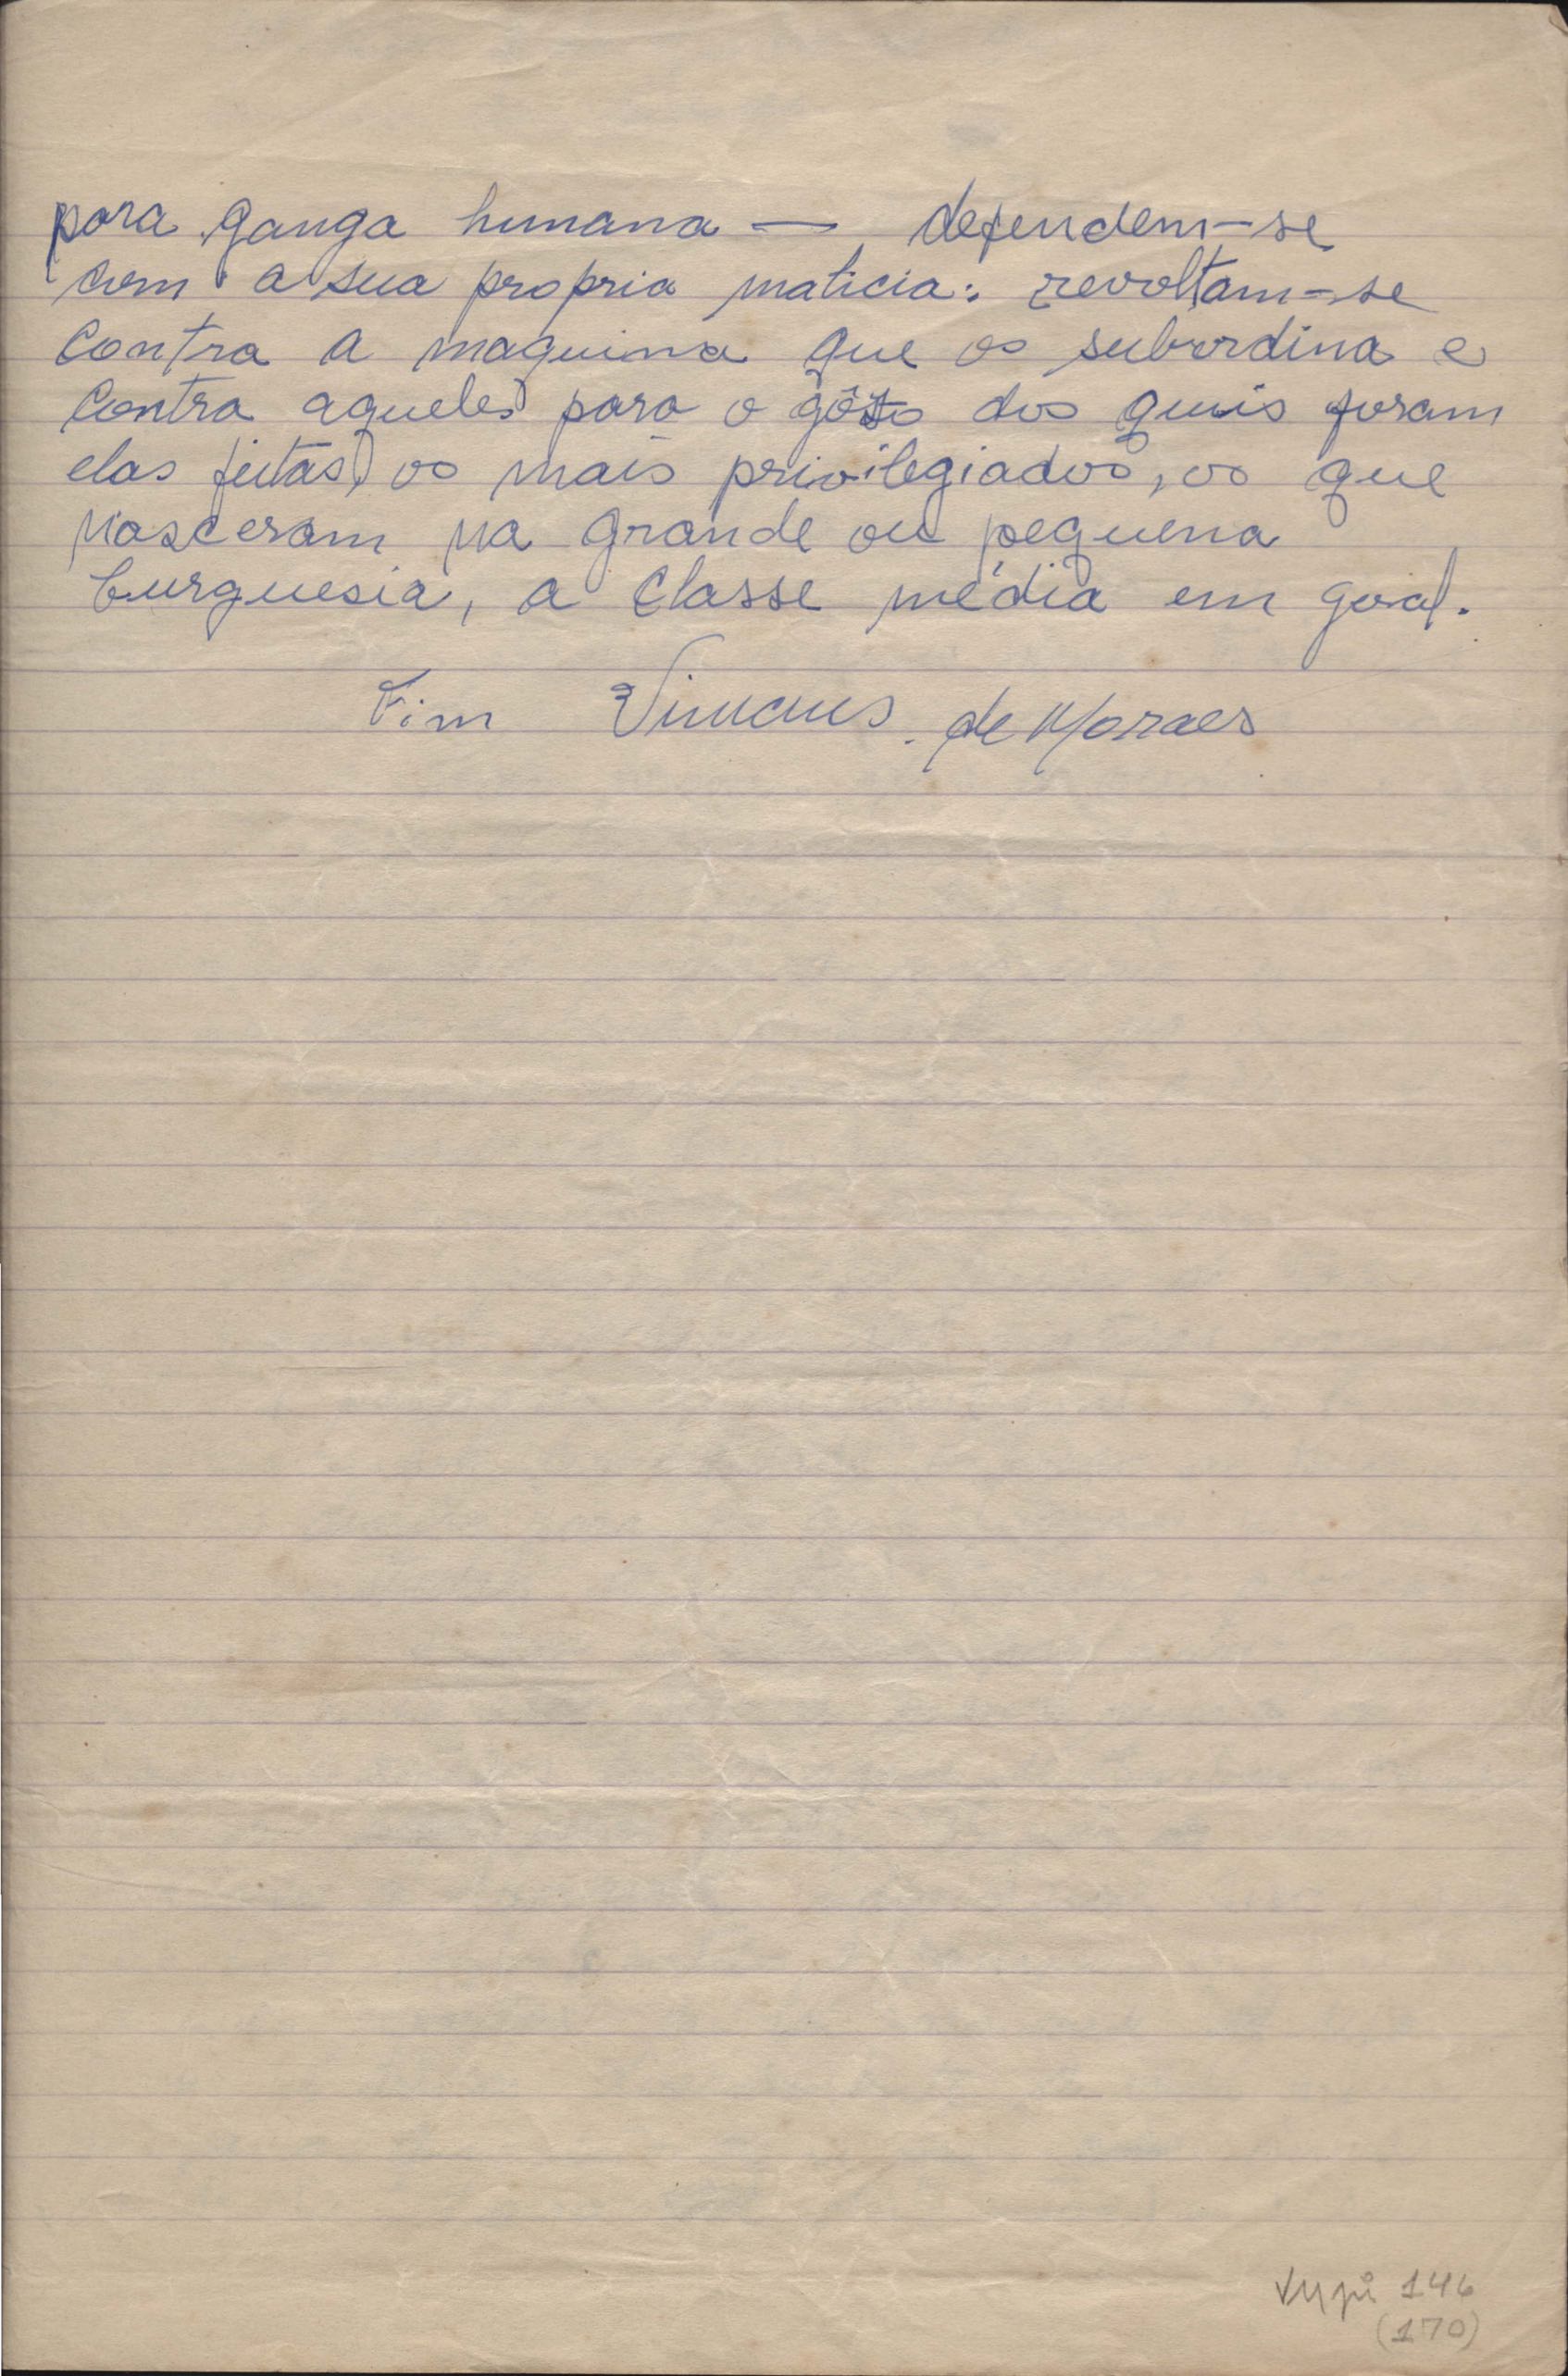 para ganga humana — defendem-se
com a sua propria malicia: revoltam-se
contra a maquina que os subordina e
contra aqueles para o gôzo dos quais foram
elas feitas, os mais privilegiados, os que
nasceram na grande ou pequena
burguesia, a classe média em geral.
Fim Vinicius de Moraes
146
(170)